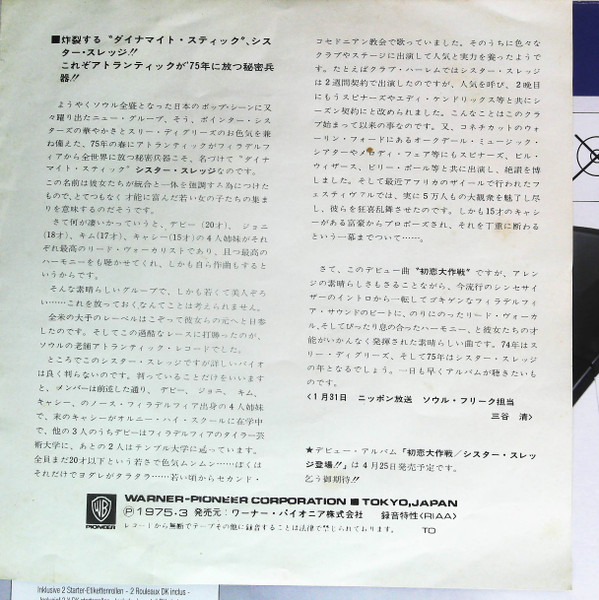 ■炸裂する〝ダイナマイト・スティック〟、シス
ター・スレッジ!!
これぞアトランティックが'75年に放つ秘密兵
器!!
ようやくソウル全盛となった日本のポップ・シーンに又
々躍り出たニュー・グループ、そう、ポインター・シス
ターズの華やかさとスリー・ディグリーズのお色気を兼
ね備えた、75年の春にアトランティックがフィラデルフ
ィアから全世界に放つ秘密兵器こそ、名づけて〝ダイナ
マイト・スティック〟シスター・スレッジなのです。
この名前は彼女たちが統合と一体を強調する為につけた
もので、とてつもなく才能に富んだ若い女の子たちの集ま
りを意味するのだそうです。
さて何が凄いかっていうと、デビー(20才)、ジョニ
(18才)、キム(17才)、キャシー(15才)の4人姉妹がそれ
ぞれ最高のリード・ヴォーカリストであり、且つ最高の
ハーモニーをも聴かせてくれ、しかも自ら作曲もするとい
うからです。
そんな素晴らしいグループで、しかも若くて美人ぞろ
い……これを放っておくなんてことは考えられません。
全米の大手のレーベルはこぞって彼女らの元へと日参
したのです。そしてこの過酷なレースに打勝ったのが、
ソウルの老舗アトランティック・レコードでした。
ところでこのシスター・スレッジですが詳しいバイオ
は良く判らないのです。判っていることだけをいいます
と、メンバーは前述した通り、デビー、ジョニ、キム、
キャシー、のノース・フィラデルフィア出身の4人姉妹
で、末のキャシーがオルニー・ハイ・スクールに在学中
で、他の3人のうちデビーはフィラデルフィアのタイラー芸
術大学に、あとの2人はテンプル大学に通っています。
全員まだ20才以下という若さで色気ムンムン……ぼくは
それだけでヨダレがタラタラ……若い頃からセカンド・
コセドニアン教会で歌っていました。そのうちに色々な
クラブやステージに出演して人気と実力を養ったようで
す。たとえばクラブ・ハーレムではシスター・スレッジ
は2週間契約で出演したのですが、人気を呼び、2晩目
にもうスピナーズやエディ・ケンドリックス等と共にシ
ーズン契約にと改められました。こんなことはこのクラ
ブ始まって以来の事なのです。又、コネチカットのウォ
ーリン・フォードにあるオークデール・ミュージック・
シアターやメロディ・フェア等にもスピナーズ、ビル・
ウィザース、ビリー・ポール等と共に出演し、絶讃を博
しました。そして最近アフリカのザイールで行われたフ
ェスティヴァルでは、実に5万人もの大観衆を魅了し尽
し、彼らを狂喜乱舞させたのです。しかも15才のキャシ
ーがある富豪からプロポーズされ、それを丁重に断わる
という一幕までついて……。
さて、このデビュー曲〝初恋大作戦〟ですが、アレン
ジの素晴らしさもさることながら、今流行のシンセサイ
ザーのイントロから一転してゴキゲンなフィラデルフィ
ア・サウンドのビートに、のりにのったリード・ヴォー
カル、そしてぴったり息の合ったハーモニー、と彼女たちの才
能がいかんなく発揮された素晴しい曲です。74年はス
リー・ディグリーズ、そして75年はシスター・スレッジ
の年となるでしょう。一日も早くアルバムが聴きたいも
のです。
〈1月31日 ニッポン放送 ソウル・フリーク担当
三谷 清〉
★デビュー・アルバム「初恋大作戦/シスター・スレッ
ジ登場!!」は4月25日発売予定です。
乞う御期待!!
WB
PIONEER
WARNER-PIONEER CORPORATION ■ TOKYO, JAPAN
Ⓟ1975・3 発売元:ワーナー・パイオニア株式会社 録音特性〈RIAA〉
レコードから無断でテープその他に録音することは法律で禁じられております。 TO
Inklusive 2 Starter-Etikettenrollen - 2 Rouleaux DK inclus -